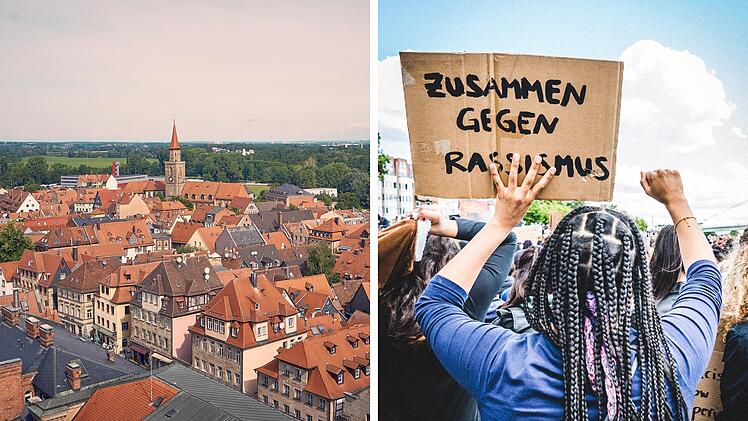 ZUSAMMEN
GEGEN
RASSISMUS